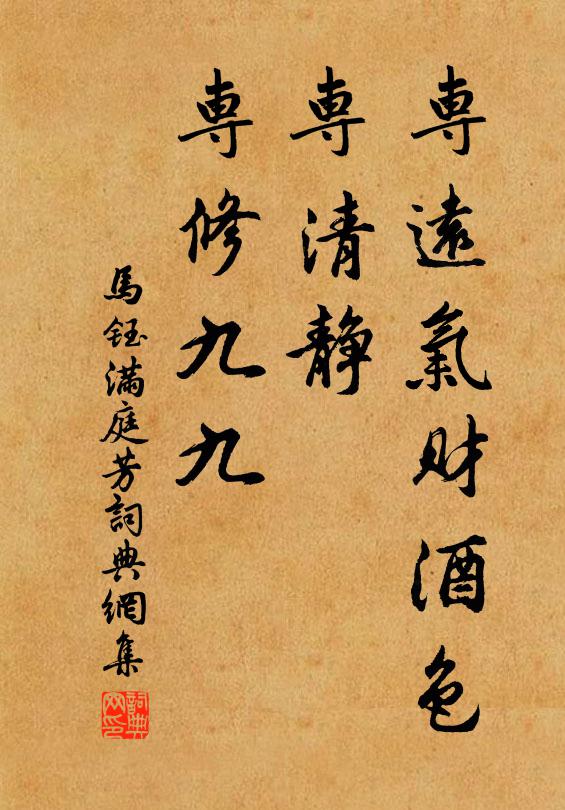 専遠氣財酒色
専清靜
専修九九
馬鈺滿庭芳詞典網集
詞典
网印